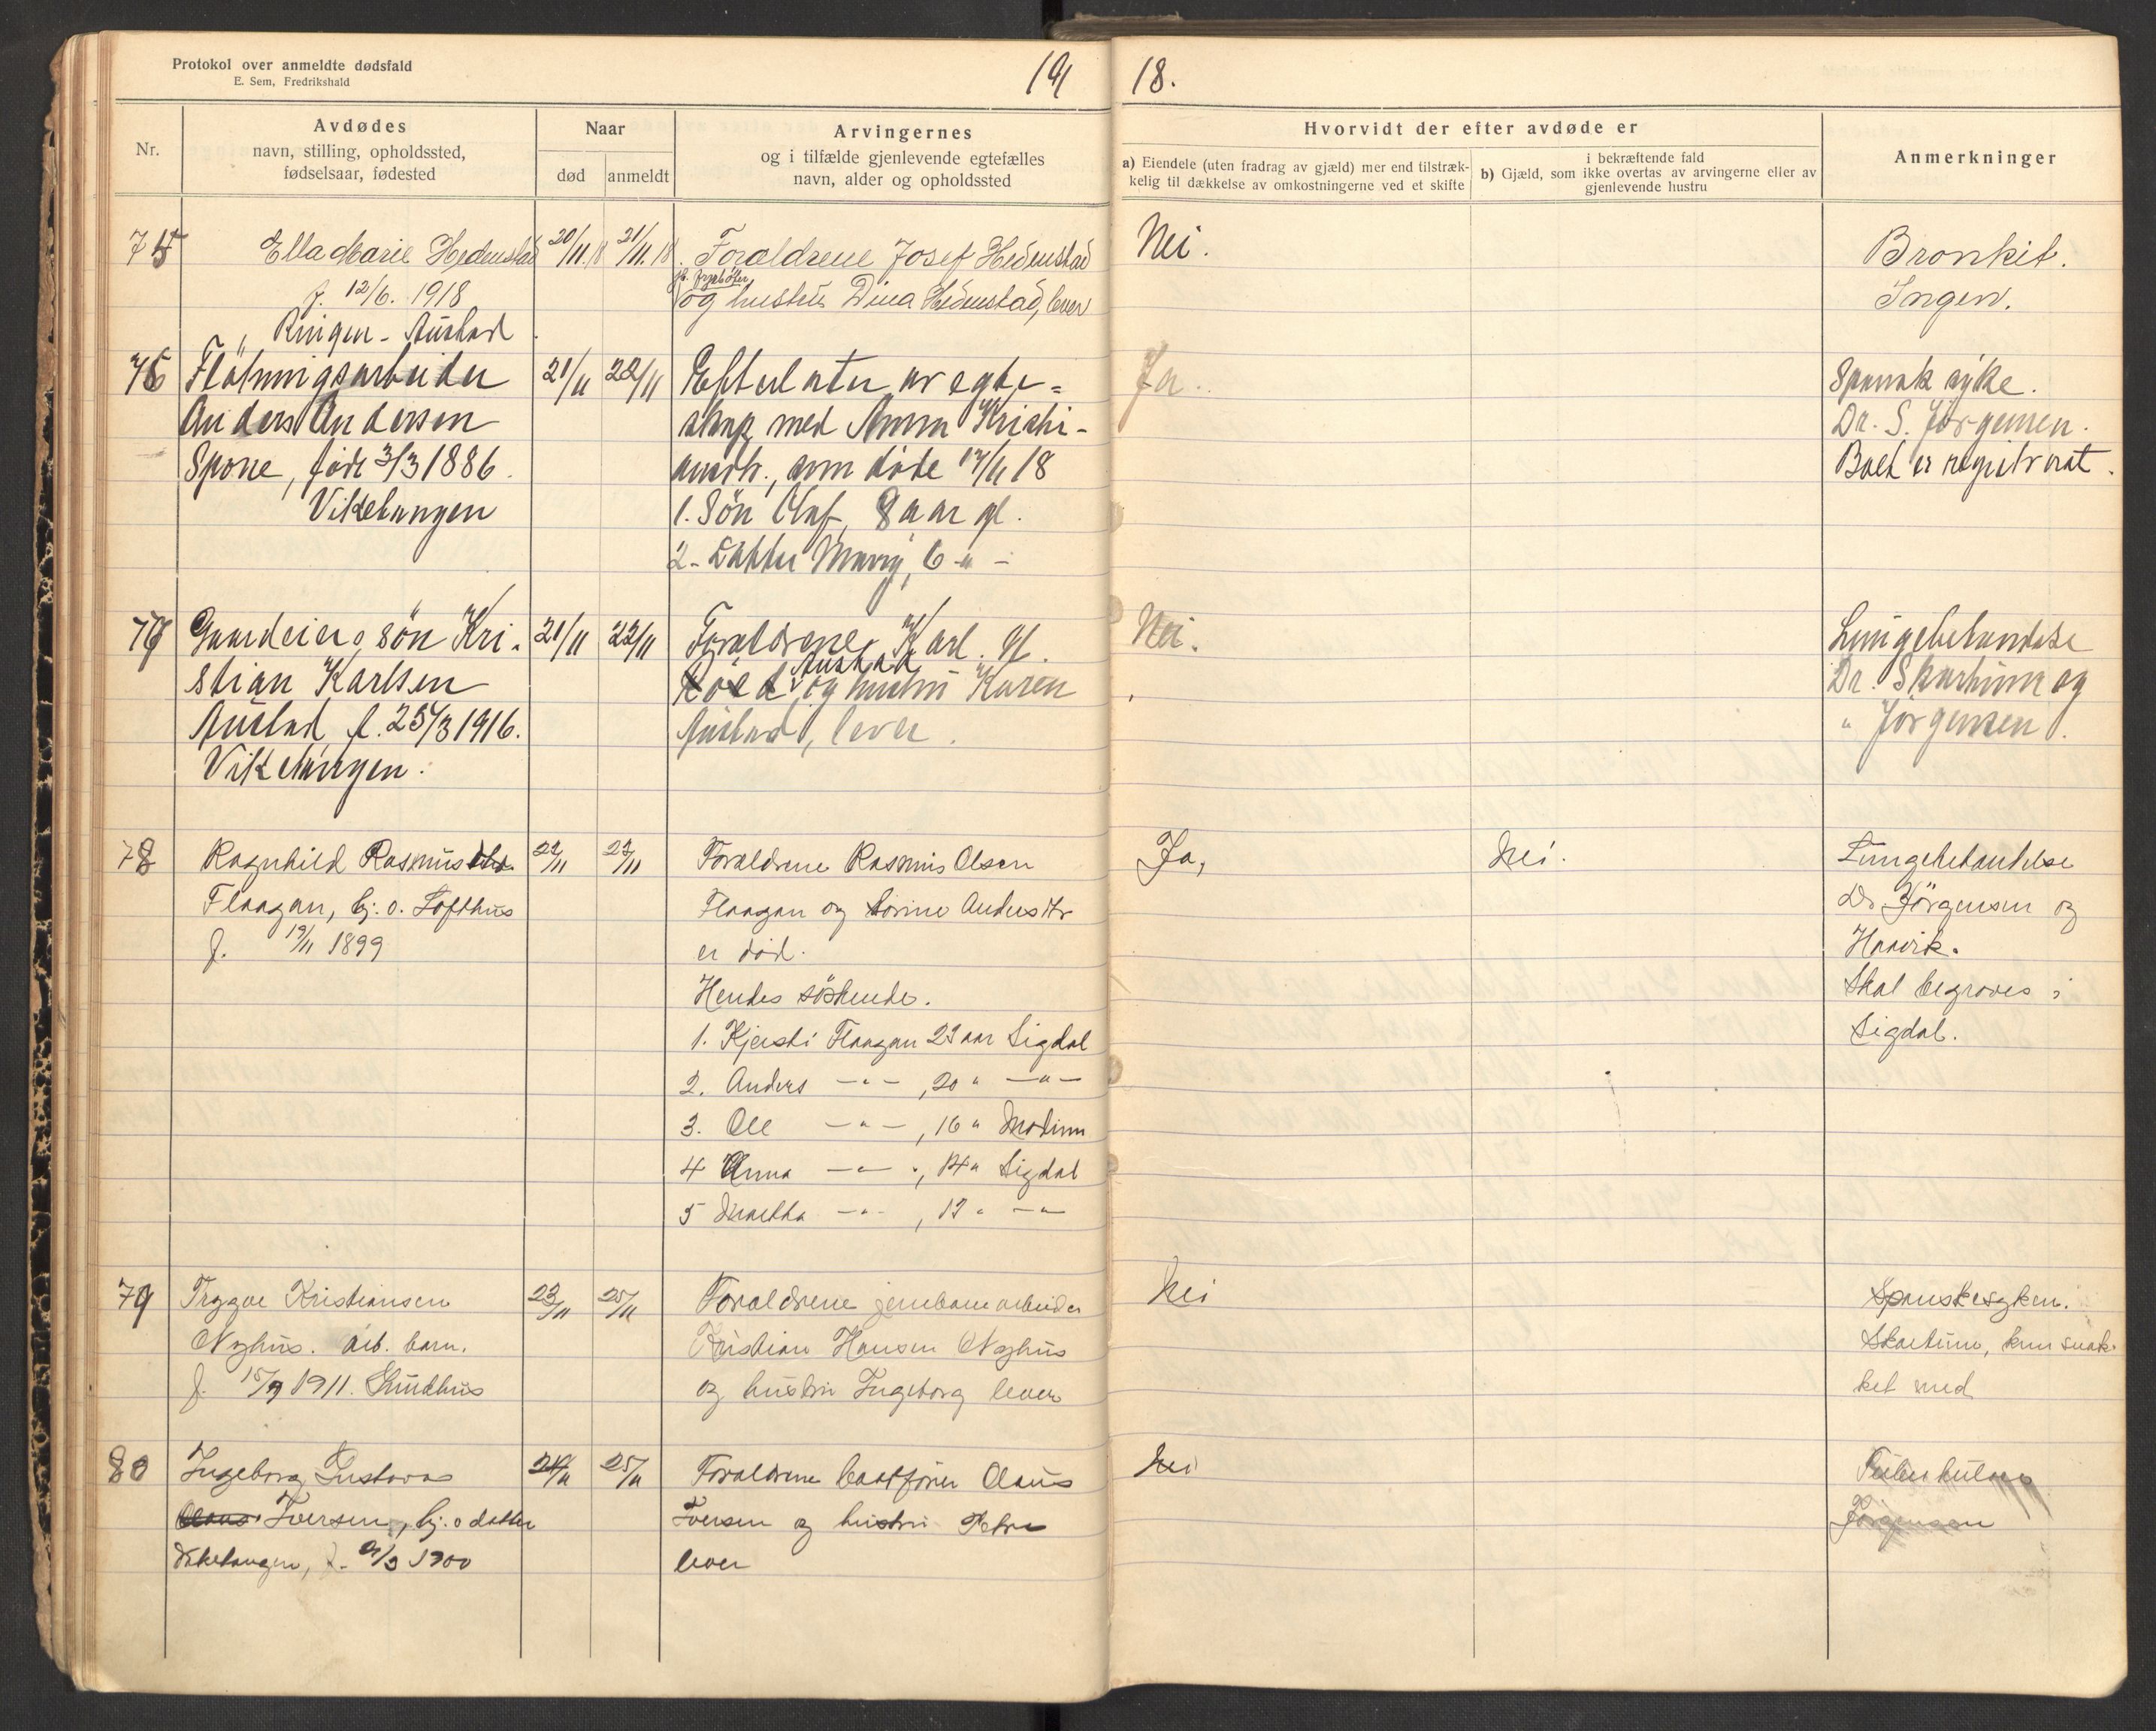 Protokol over anmeldte dødsfald
E. Sem, Fredrikshald
19
18.
Nr.
Avdødes
navn, stilling, opholdssted,
fødselsaar, fødested
Naar
død
anmeldt
Arvingernes
og i tilfælde gjenlevende egtefælles
navn, alder og opholdssted
Hvorvidt der efter avdøde er
a) Eiendele (uten fradrag av gjæld) mer end tilstræk-
kelig til dækkelse av omkostningerne ved et skifte
i bekræftende fald
b) Gjæld, som ikke overtas av arvingerne eller av
gjenlevende hustru
Anmerkninger
75 Ella Marie Hedenstad 20/11.18 21/11.18. Forældrene Josef Hedenstad Nei. Bronkit.
f. 12/6. 1918 og hustru Dina Hedenstad, lever Ingen.
Ringen - Austad
76 Flötningsarbeider 21/11 22/11 Efterlater av egte= Ja. Spansk syke.
Anders Andersen skap med Anna Kristi- Dr. S. Jörgensen.
Spone, född 3/3 1886. ansdtr., som döde 17/11 18 Boet er registrerat.
Viketangen 1. Sön Olaf, 8 aar gl.
2- Datter Mary, 6 -"-
77 Gaardeiers sön Kri- 21/11 22/11 Forældrene Karl Gl. Nei. Lungebetændelse
stian Karlsen Röed Austad og hustru Karen Dr. Skarhum og
Austad f. 25/3 1916. Austad, lever. " Jörgensen.
Viketangen.
78 Ragnhild Rasmusdtr. 22/11 23/11 Forældrene Rasmus Olsen Ja, Nei. Lungebetændelse
Flaagan, bj. o. Lofthus Flaagan og Sorine Andersdtr Dr Jörgensen og
f. 19/11 1899 er död. Haavik.
Hendes söskende. Skal begraves i
1. Kjersti Flaagan 23 aar Sigdal Sigdal.
2. Anders -"- , 20 " -"-
3. Ole -"- , 16 " Modum
4 Anna -"- , 14 " Sigdal
5 Martha -"- , 12 " -"-
79 Trygve Kristiansen 23/11 25/11 Forældrene jernbanearbeider Nei Spanskesyken.
Nyhus. arb. barn. Kristian Hansen Nyhus Skartum, kun snak-
f. 15/9 1911. Grudhus og hustru Ingeborg lever ket med
80 Ingeborg Gustava 24/11 25/11 Forældrene baatförer Olaus Nei Tuberkulose
Olaus Iversen, bj. o datter Iversen og hustru Petra Jörgensen
Viketangen, f. 9/3 1900 lever